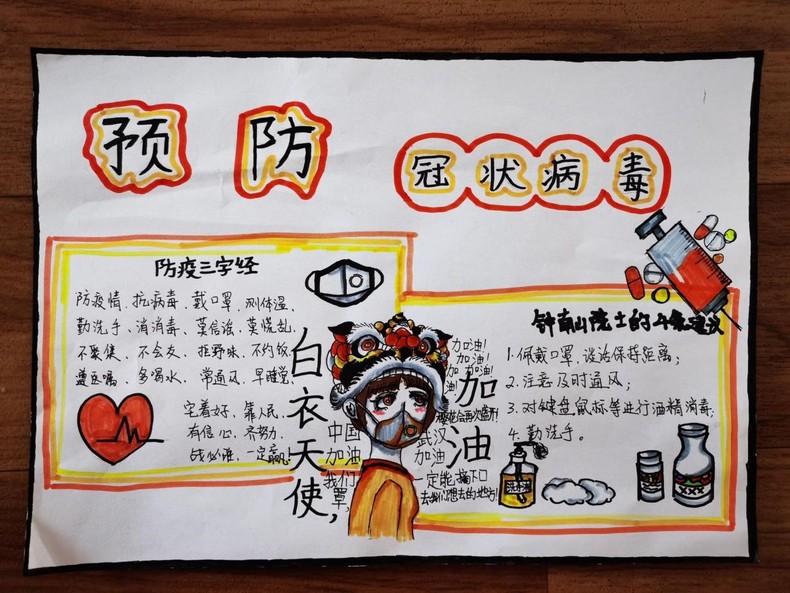 预防
冠状病毒
防疫三字经
防疫情、抗病毒、戴口罩、测体温、
勤洗手、消消毒、莫信谣、莫慌乱、
不聚集、不会友、拒野味、不约饭、
遵医嘱、多喝水、常通风、早睡觉、
宅着好、靠人民、
有信心、齐努力、
战必胜、一定赢!
白衣天使,
加油
加油!
加油!
加油!
中国
加油
武汉
加油
我们
一定能摘下口
罩,
去我们想去的地方!
钟南山院士的4条建议
1.佩戴口罩,谈话保持距离;
2.注意及时通风;
3.对键盘鼠标等进行酒精消毒;
4.勤洗手。
洗手液
XXX